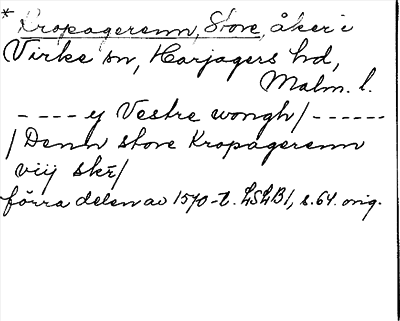 * Kropagerenn, Store, åker i
Virke sn, Harjagers hd,
Malm. l.
---- ej Vestre wongh/ ------
/ Denn store Kropagerenn
viij skr/
förra delen av 1570-t. LSLB1, s.64. orig.